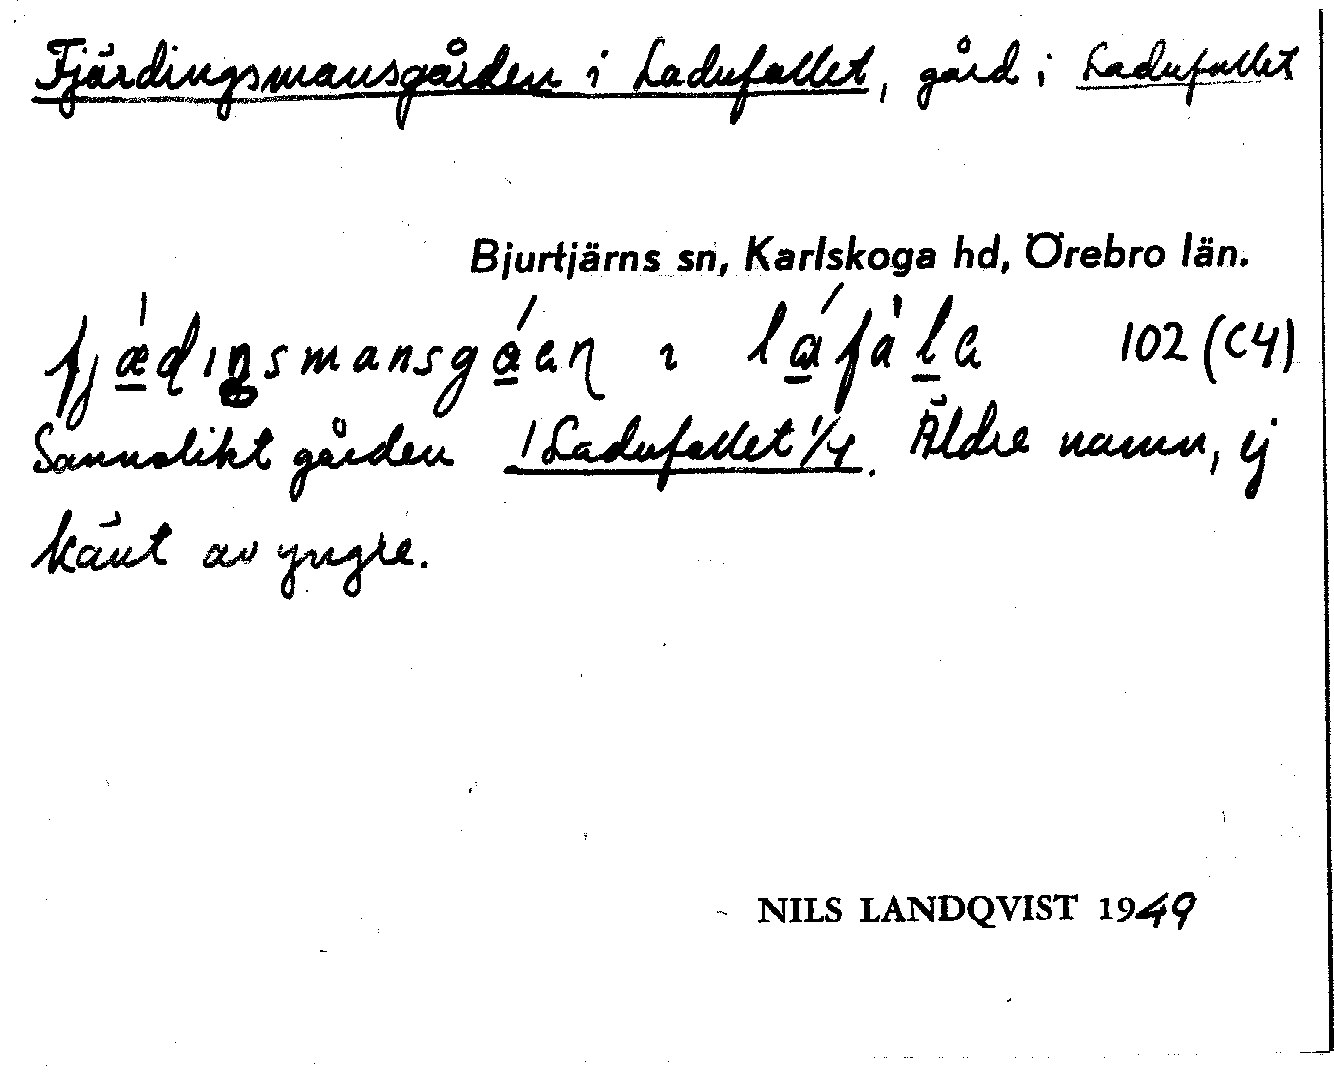 Fjärdingsmansgården i Ladufallet, gård i Ladufallet
Bjurtjärns sn, Karlskoga hd, Örebro län.
fjǽdıŋsmansgáen ı láfàla 102 (C4)
Sannolikt gården 1 Ladufallet 1/4. Äldre namn, ej
känt av yngre.
NILS LANDQVIST 1949